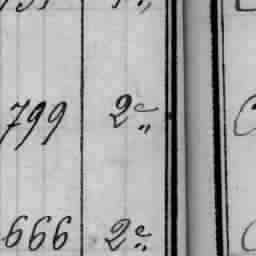 799 2ª „
666 2ª „